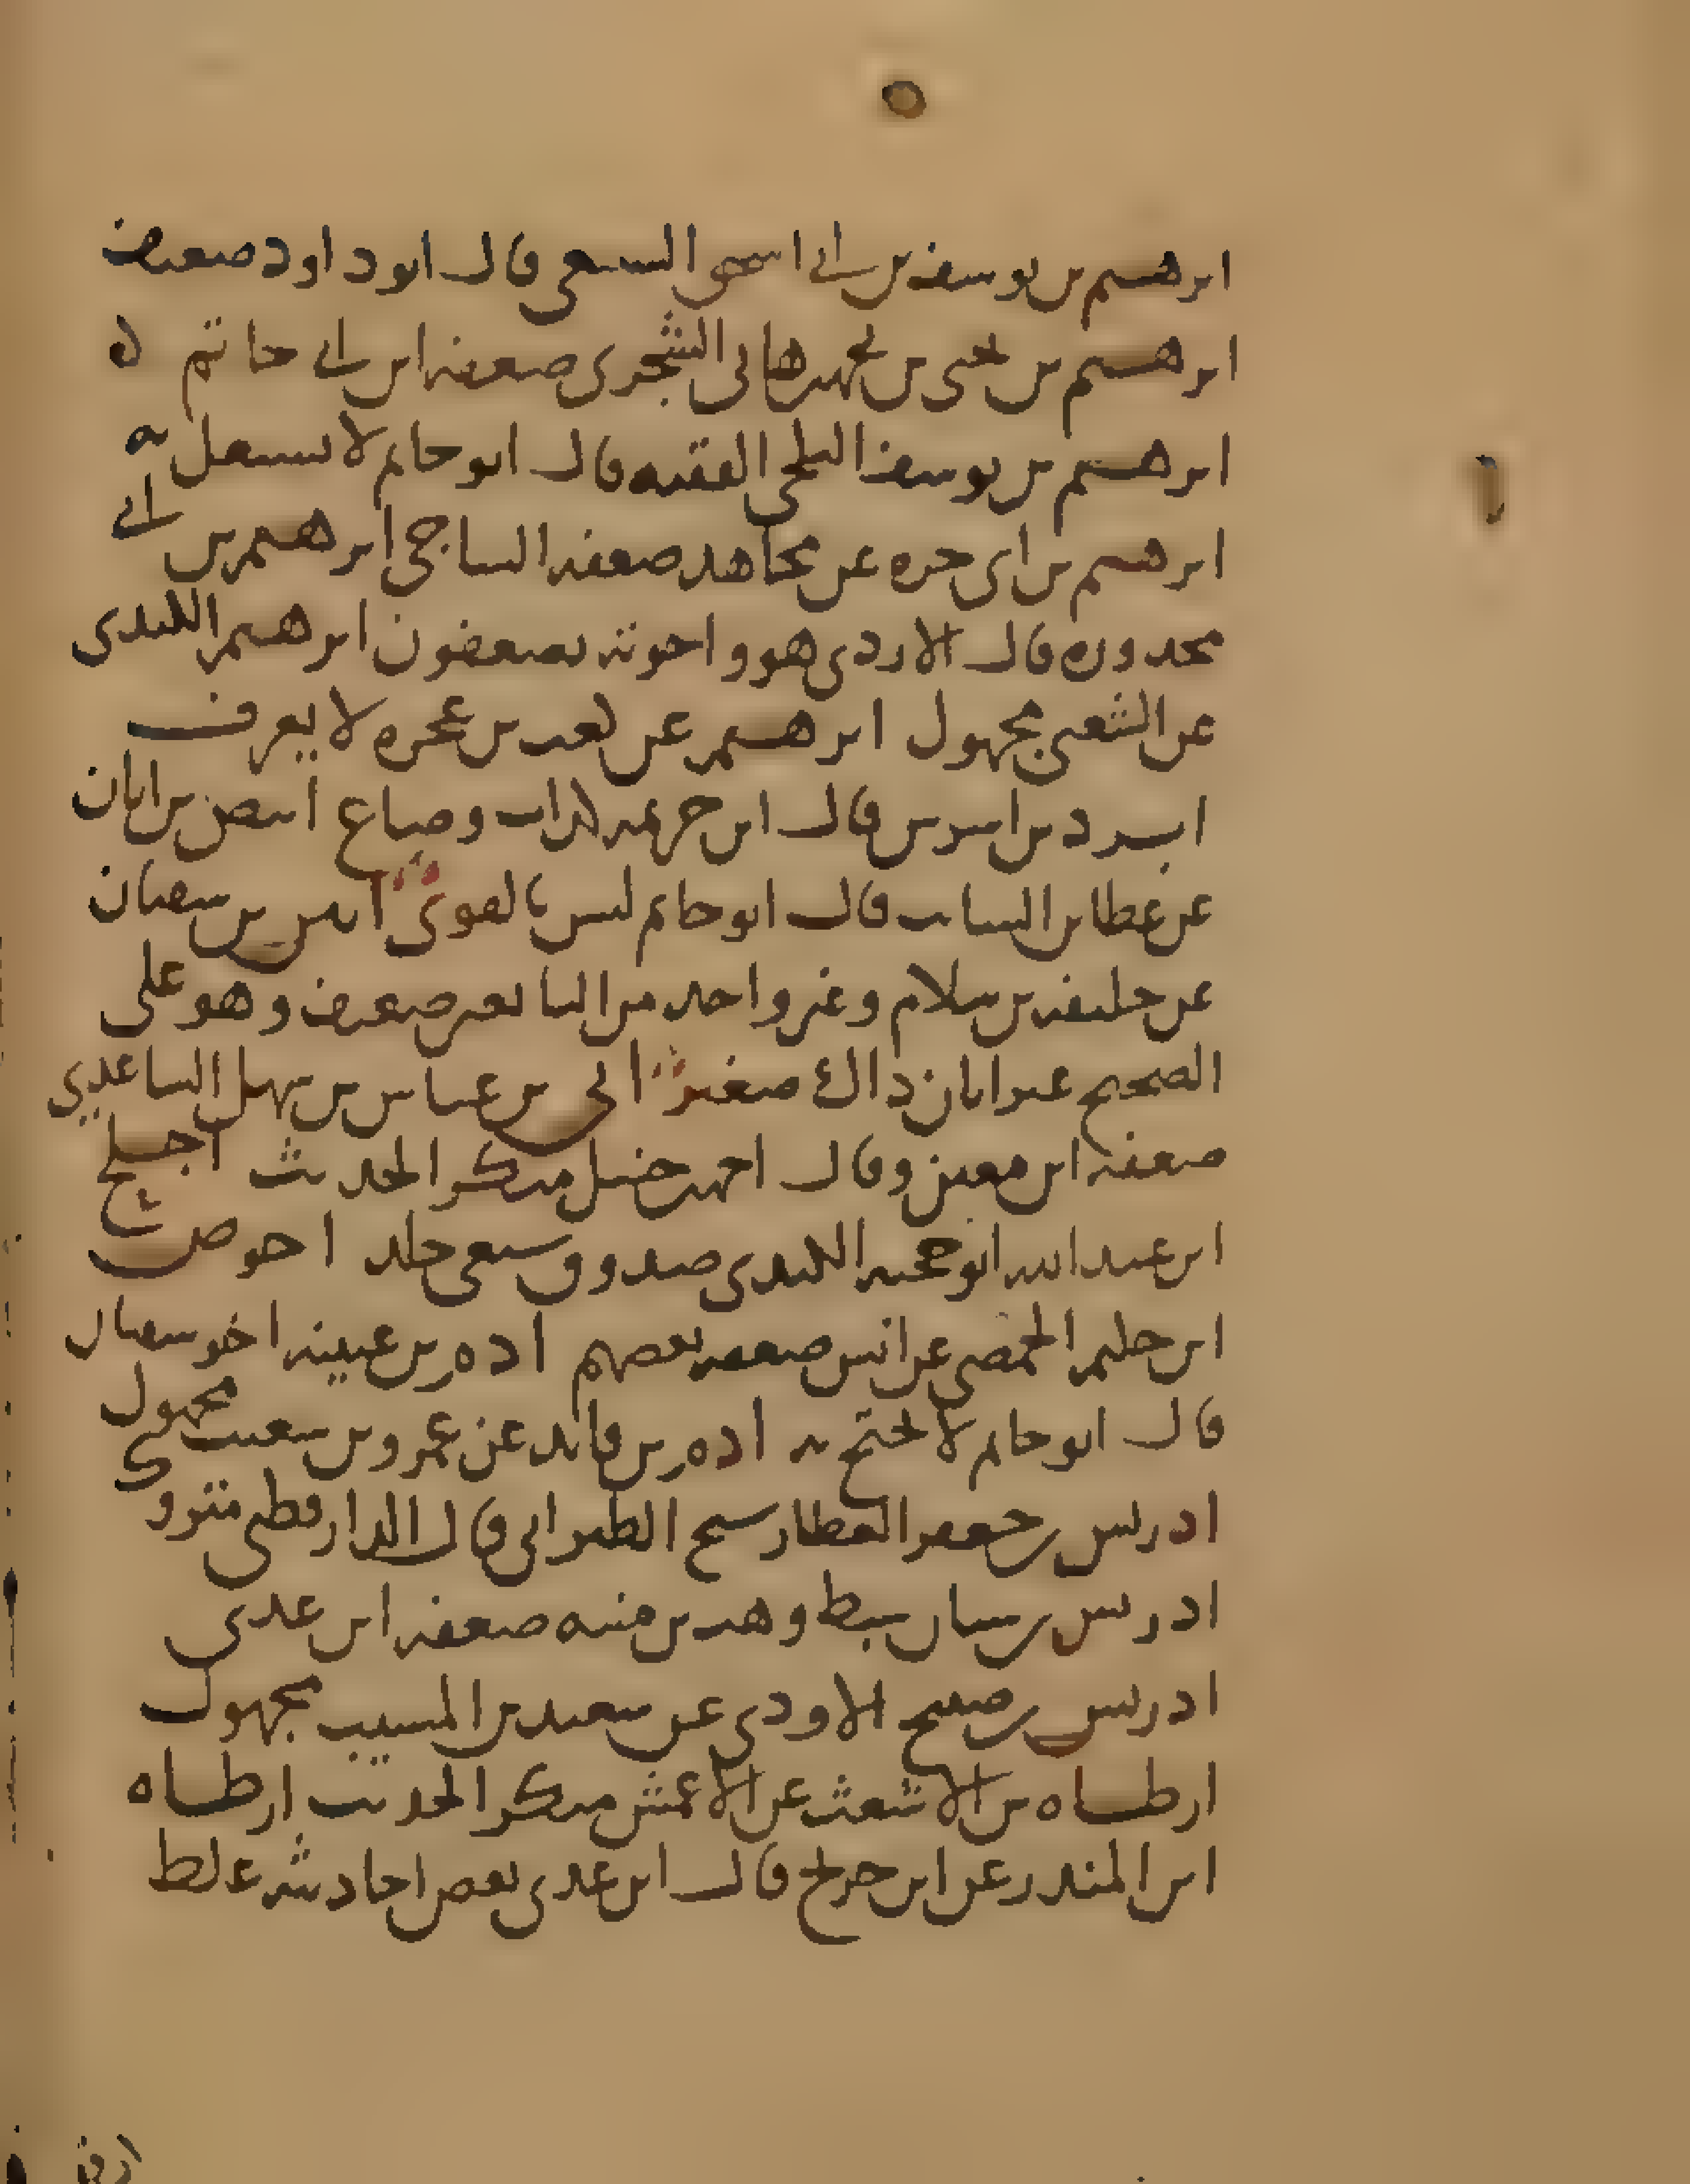 ابرهيم بن يوسف بن ابي اسحق السبيعي قال ابو داود ضعيف
ابرهيم بن يحيى بن محمد بن هاني الشجري ضعفه ابن ابي حاتم ه
ابرهيم بن يوسف البلخي الفقيه قال ابو حاتم لا يشتغل به
ابرهيم بن ابي حره عن مجاهد ضعفه الساجي ابرهيم بن ابي
محذوره قال الازدي هو واخوته يضعفون ابرهيم الكندي
عن الشعبي مجهول ابرهيم عن كعب بن عجره لا يعرف
ابرد بن اشرس قال ابن خزيمه كذاب وضاع ابيض بن ابان
عن عطا بن السايب قال ابو حاتم ليس بالقوي ابيض بن سفيان
عن خليفه بن سلام وغير واحد من التابعين ضعيف وهو على
الصحيح عبر ابان ذاك صغير ابي بن عباس بن سهل الساعدي
ضعفه ابن معين وقال احمد حنبل منكر الحديث اجلح
ابن عبد الله ابو حجيه الكندي صدوق شيعي جلد احوص
ابن حكيم الحمصي عن انس ضعفه بعضهم ادم بن عيينه اخو سفيان
قال ابو حاتم لا يحتج به ادم بن فايد عن عمرو بن شعيب مجهول
ادريس بن جعفر العطار شيخ الطبراني قال الدارقطني متروك
ادريس بن سنان سبط وهب بن منبه ضعفه ابن عدي
ادريس بن صبيح الاودي عن سعيد بن المسيب مجهول
ارطاه بن الاشعث عن الاعمش منكر الحديث ارطاه
ابن المنذر عن ابن جريج قال ابن عدي بعض احاديثه غلط